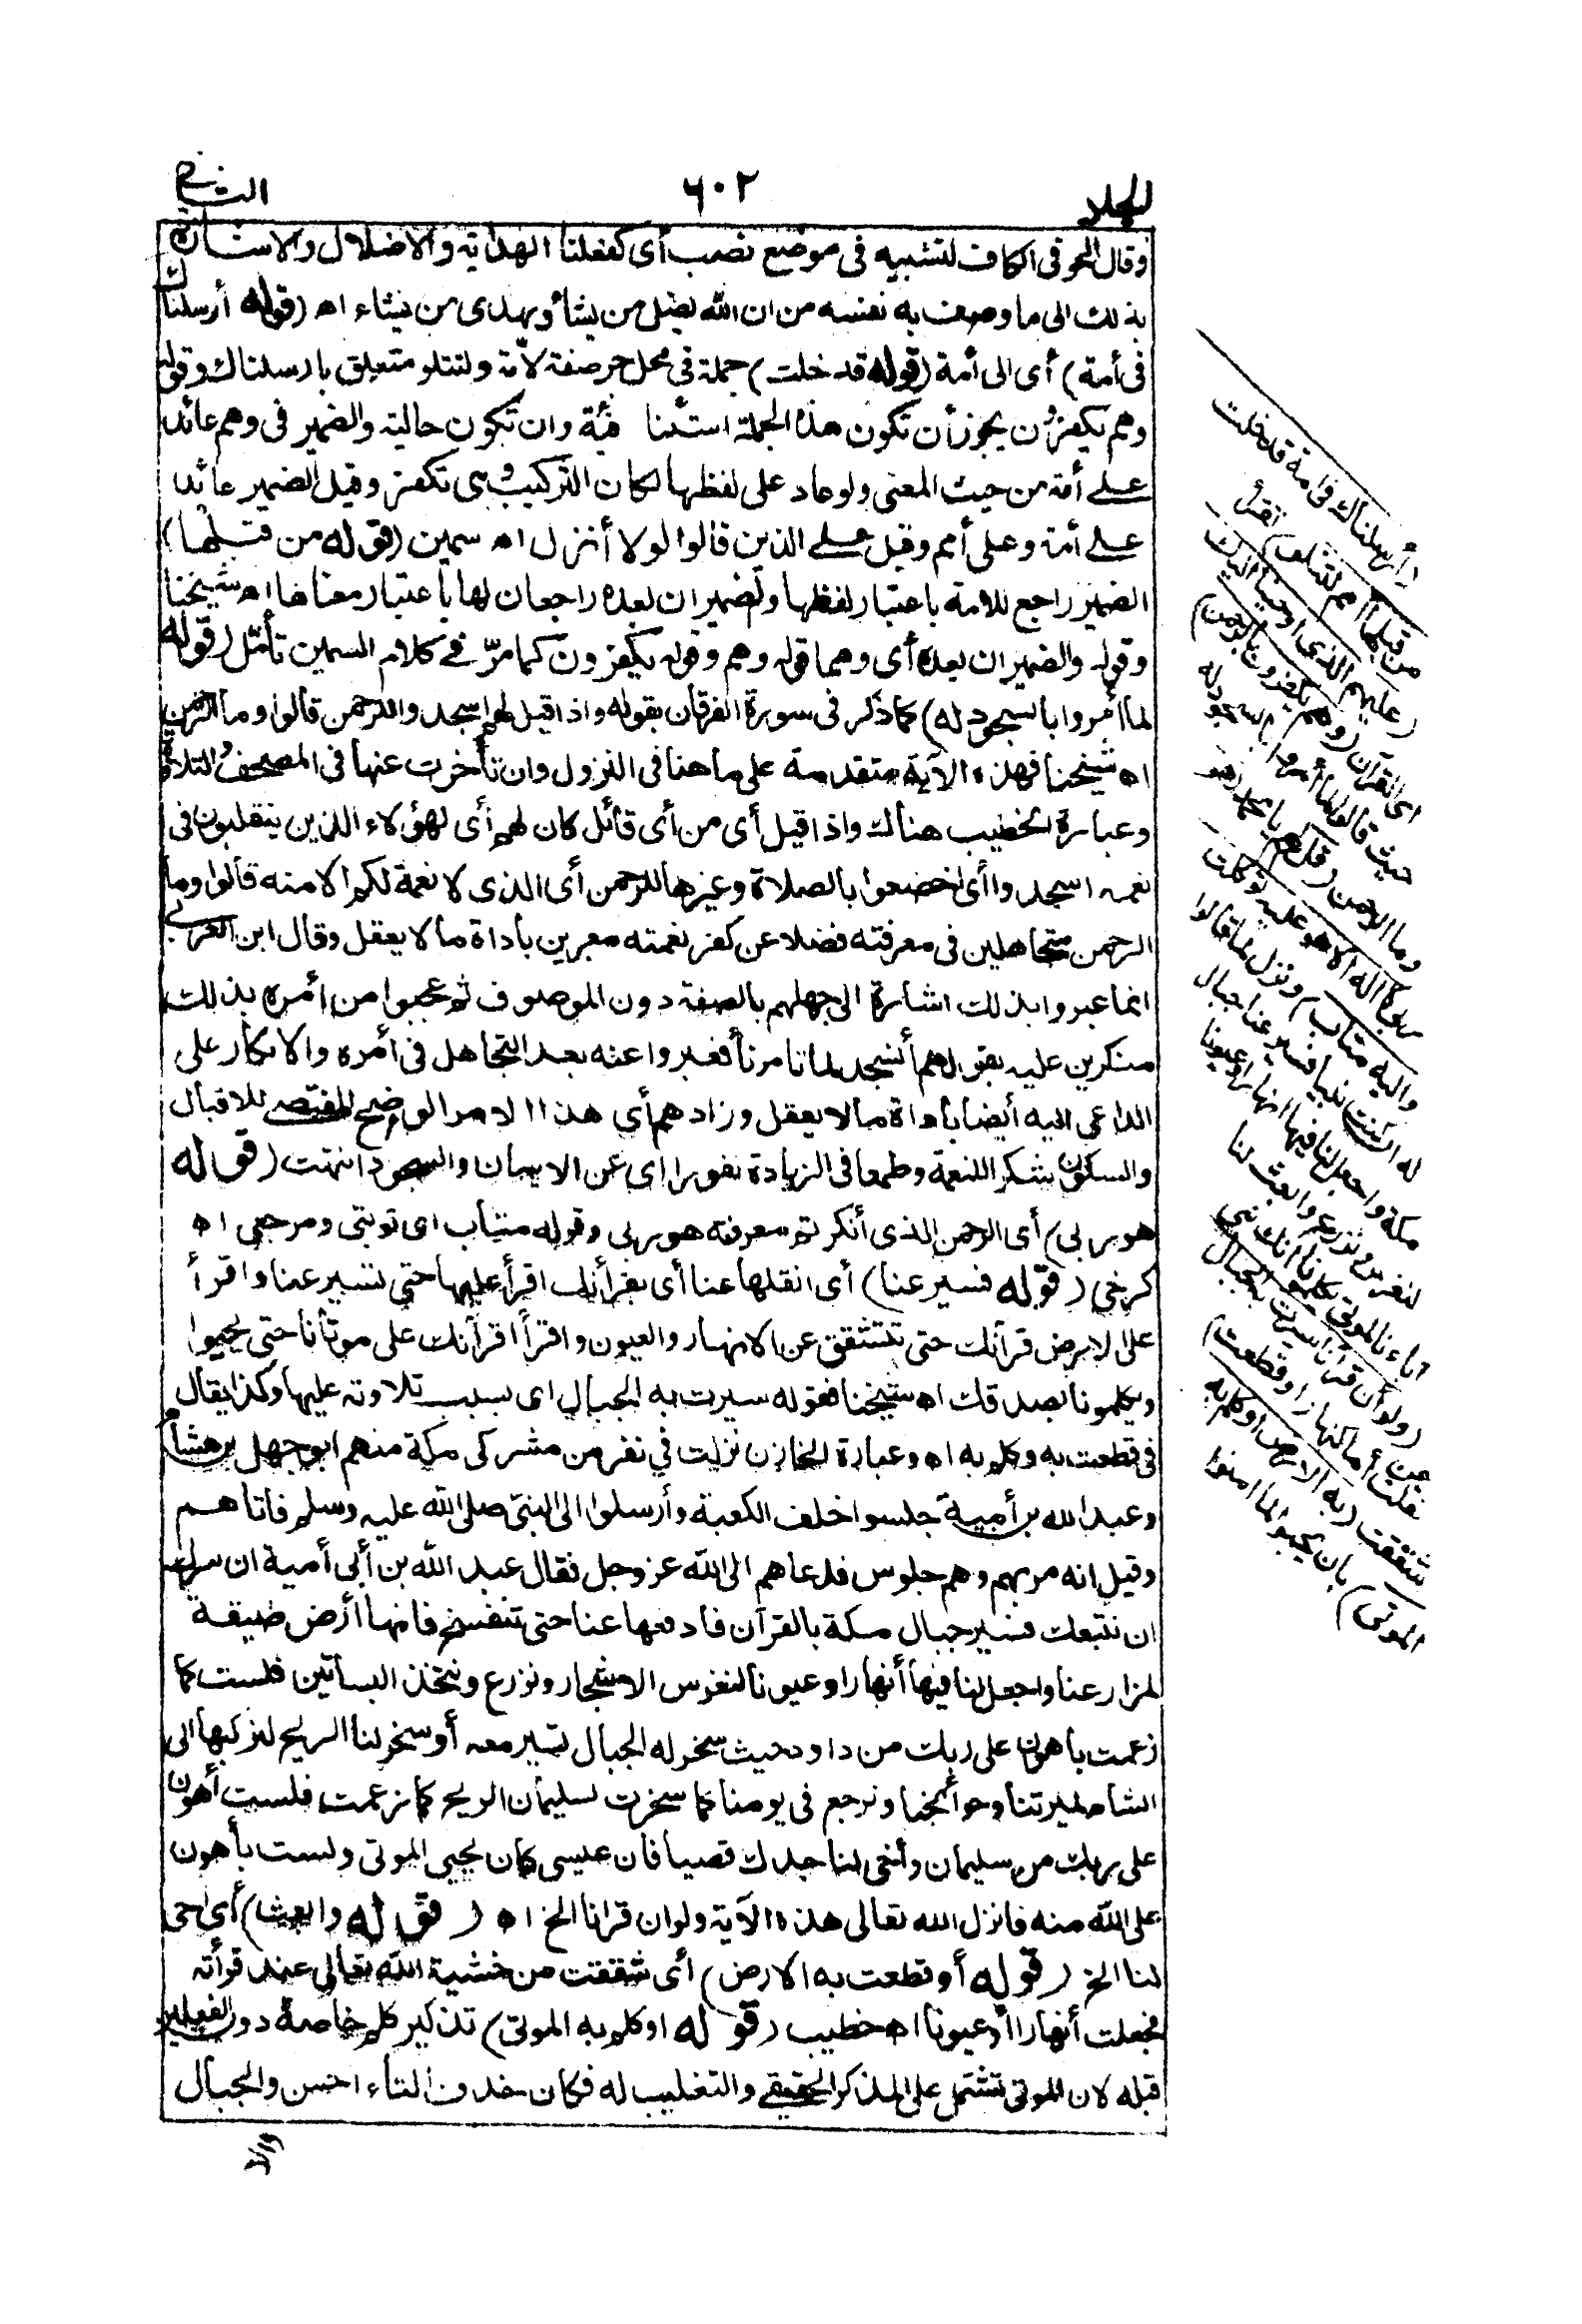 المجلد
٦٠٢
الثاني
وقال الحوفي الكاف لتشبيه في موضع نصب أي كفعلنا الهداية والاضلال والاشارة
بذلك الى ما وصف به نفسه من ان الله يضل من يشأ ويهدى من يشاء اه (قوله أرسلناك
فى أمة) أى الى أمة (قوله قد خلت) جملة في محل جر صفة لامة ولتتلو متعلق بارسلناك وقوله
وهم يكفرون يجوز أن تكون هذه الجملة استئنافية وان تكون حالية والضمير فى وهم عائد
على أمة من حيث المعنى ولو عاد على لفظها لكان التركيب وهى تكفر وقيل الضمير عائد
على أمة وعلى أمم وقيل على الذين قالوا لولا أنزل اه سمين (قوله من قبلها)
الضمير راجع للامة باعتبار لفظها والضميران بعده راجعان لها باعتبار معناها اه شيخنا
وقوله والضميران بعده أى وهما قوله وهم وقوله يكفرون كما مرّ في كلام السمين تأمّل (قوله
لما أمروا بالسجود له) كما ذكر فى سورة الفرقان بقوله واذا قيل لهم اسجدوا للرحمن قالوا وما الرحمن
اه شيخنا فهذه الآية متقدمة على ما هنا فى النزول وان تأخرت عنها فى المصحف والتلاوة
وعبارة الخطيب هناك واذا قيل أى من أى قائل كان لهم أى لهؤلاء الذين يتقلبون فى
نعمه اسجدوا أى اخضعوا بالصلاة وغيرها للرحمن أى الذى لا نعمة لكم الا منه قالوا وما
الرحمن متجاهلين فى معرفته فضلا عن كفر نعمته معبرين بأداة ما لا يعقل وقال ابن العربى
انما عبروا بذلك اشارة الى جهلهم بالصفة دون الموصوف ثم عجبوا من أمره بذلك
منكرين عليه بقولهم أنسجد لما تامرنا فعبروا عنه بعد التجاهل فى أمره والانكار على
الداعى اليه أيضا بأداة ما لا يعقل وزادهم أى هذا الامر الواضح المقتضى للاقبال
والسكون شكر اللنعمة وطمعا فى الزيادة نفورا اى عن الايمان والسجود انتهت (قوله
هو ربى) أى الرحمن الذى أنكرتم معرفته هو ربى وقوله متاب اى توبتى ومرجعى اه
كرخى (قوله فسير عنا) أى انقلها عنا أى بقرأنك اقرأ عليها حتى تسير عنا واقرأ
على الارض قرآنك حتى تتشقق عن الانهار والعيون واقرأ اقرآنك على موتانا حتى يحيوا
ويكلمونا بصدقك اه شيخنا فقوله سيرت به الجبال اى بسبب تلاوته عليها وكذا يقال
فى قطعت به وكلم به اه وعبارة الخازن نزلت في نفر من مشركى مكة منهم ابو جهل بن هشام
وعبد الله بن أمية جلسوا خلف الكعبة وأرسلوا الى النبى صلى الله عليه وسلم فاتاهم
وقيل انه مر بهم وهم جلوس فدعاهم الى الله عز وجل فقال عبد الله بن أبى أمية ان سرك
ان نتبعك فسير جبال مكة بالقرآن فادفعها عنا حتى تنفسح فانها أرض ضيقة
لمزارعنا واجعل لنا فيها أنهارا وعيونا لنغرس الاشجار ونزرع ونتخذ البساتين فلست كما
زعمت بأهون على ربك من داود حيث سخر له الجبال تسير معه أو سخر لنا الريح لنركبها الى
الشام لميرتنا وحوائجنا ونرجع فى يومنا كما سخرت لسليمان الريح كما زعمت فلست أهون
على ربك من سليمان وأحى لنا جدك قصيا فان عيسى كان يحيى الموتى ولست بأهون
على الله منه فانزل الله تعالى هذه الآية ولو ان قرانا الخ اه (قوله وابعث) أى احى
لنا الخ (قوله أو قطعت به الارض) أى شققت من خشية الله تعالى عند قرأته
فجعلت أنهارا أو عيونا اه خطيب (قوله او كلم به الموتى) تذكير كلم خاصة دون الفعلين
قبله لان الموتى تشتمل على المذكر الحقيقى والتغليب له فكان حذف التاء احسن والجبال
(أرسلناك فى امة قد خلت
من قبلها أمم لتتلو) تقرأ
(عليهم الذى أوحينا اليك
اى القرآن (وهم يكفرون بالرحمن)
حيث قالوا لما أمروا بالسجود له
وما الرحمن (قل) لهم يا محمد (هو
ربى لا اله الا هو عليه توكلت
واليه متاب) ونزل لما قالوا
له ان كنت نبيا فسير عنا جبال
مكة واجعل لنا فيها انهارا وعيونا
لنغرس ونزرع وابعث لنا
اباءنا الموتى يكلمونا انك نبى
(ولو أن قرآنا سيرت به الجبال)
نقلت عن أماكنها (او قطعت)
شققت (به الارض او كلم به
الموتى) بان يحيوا لما امنوا